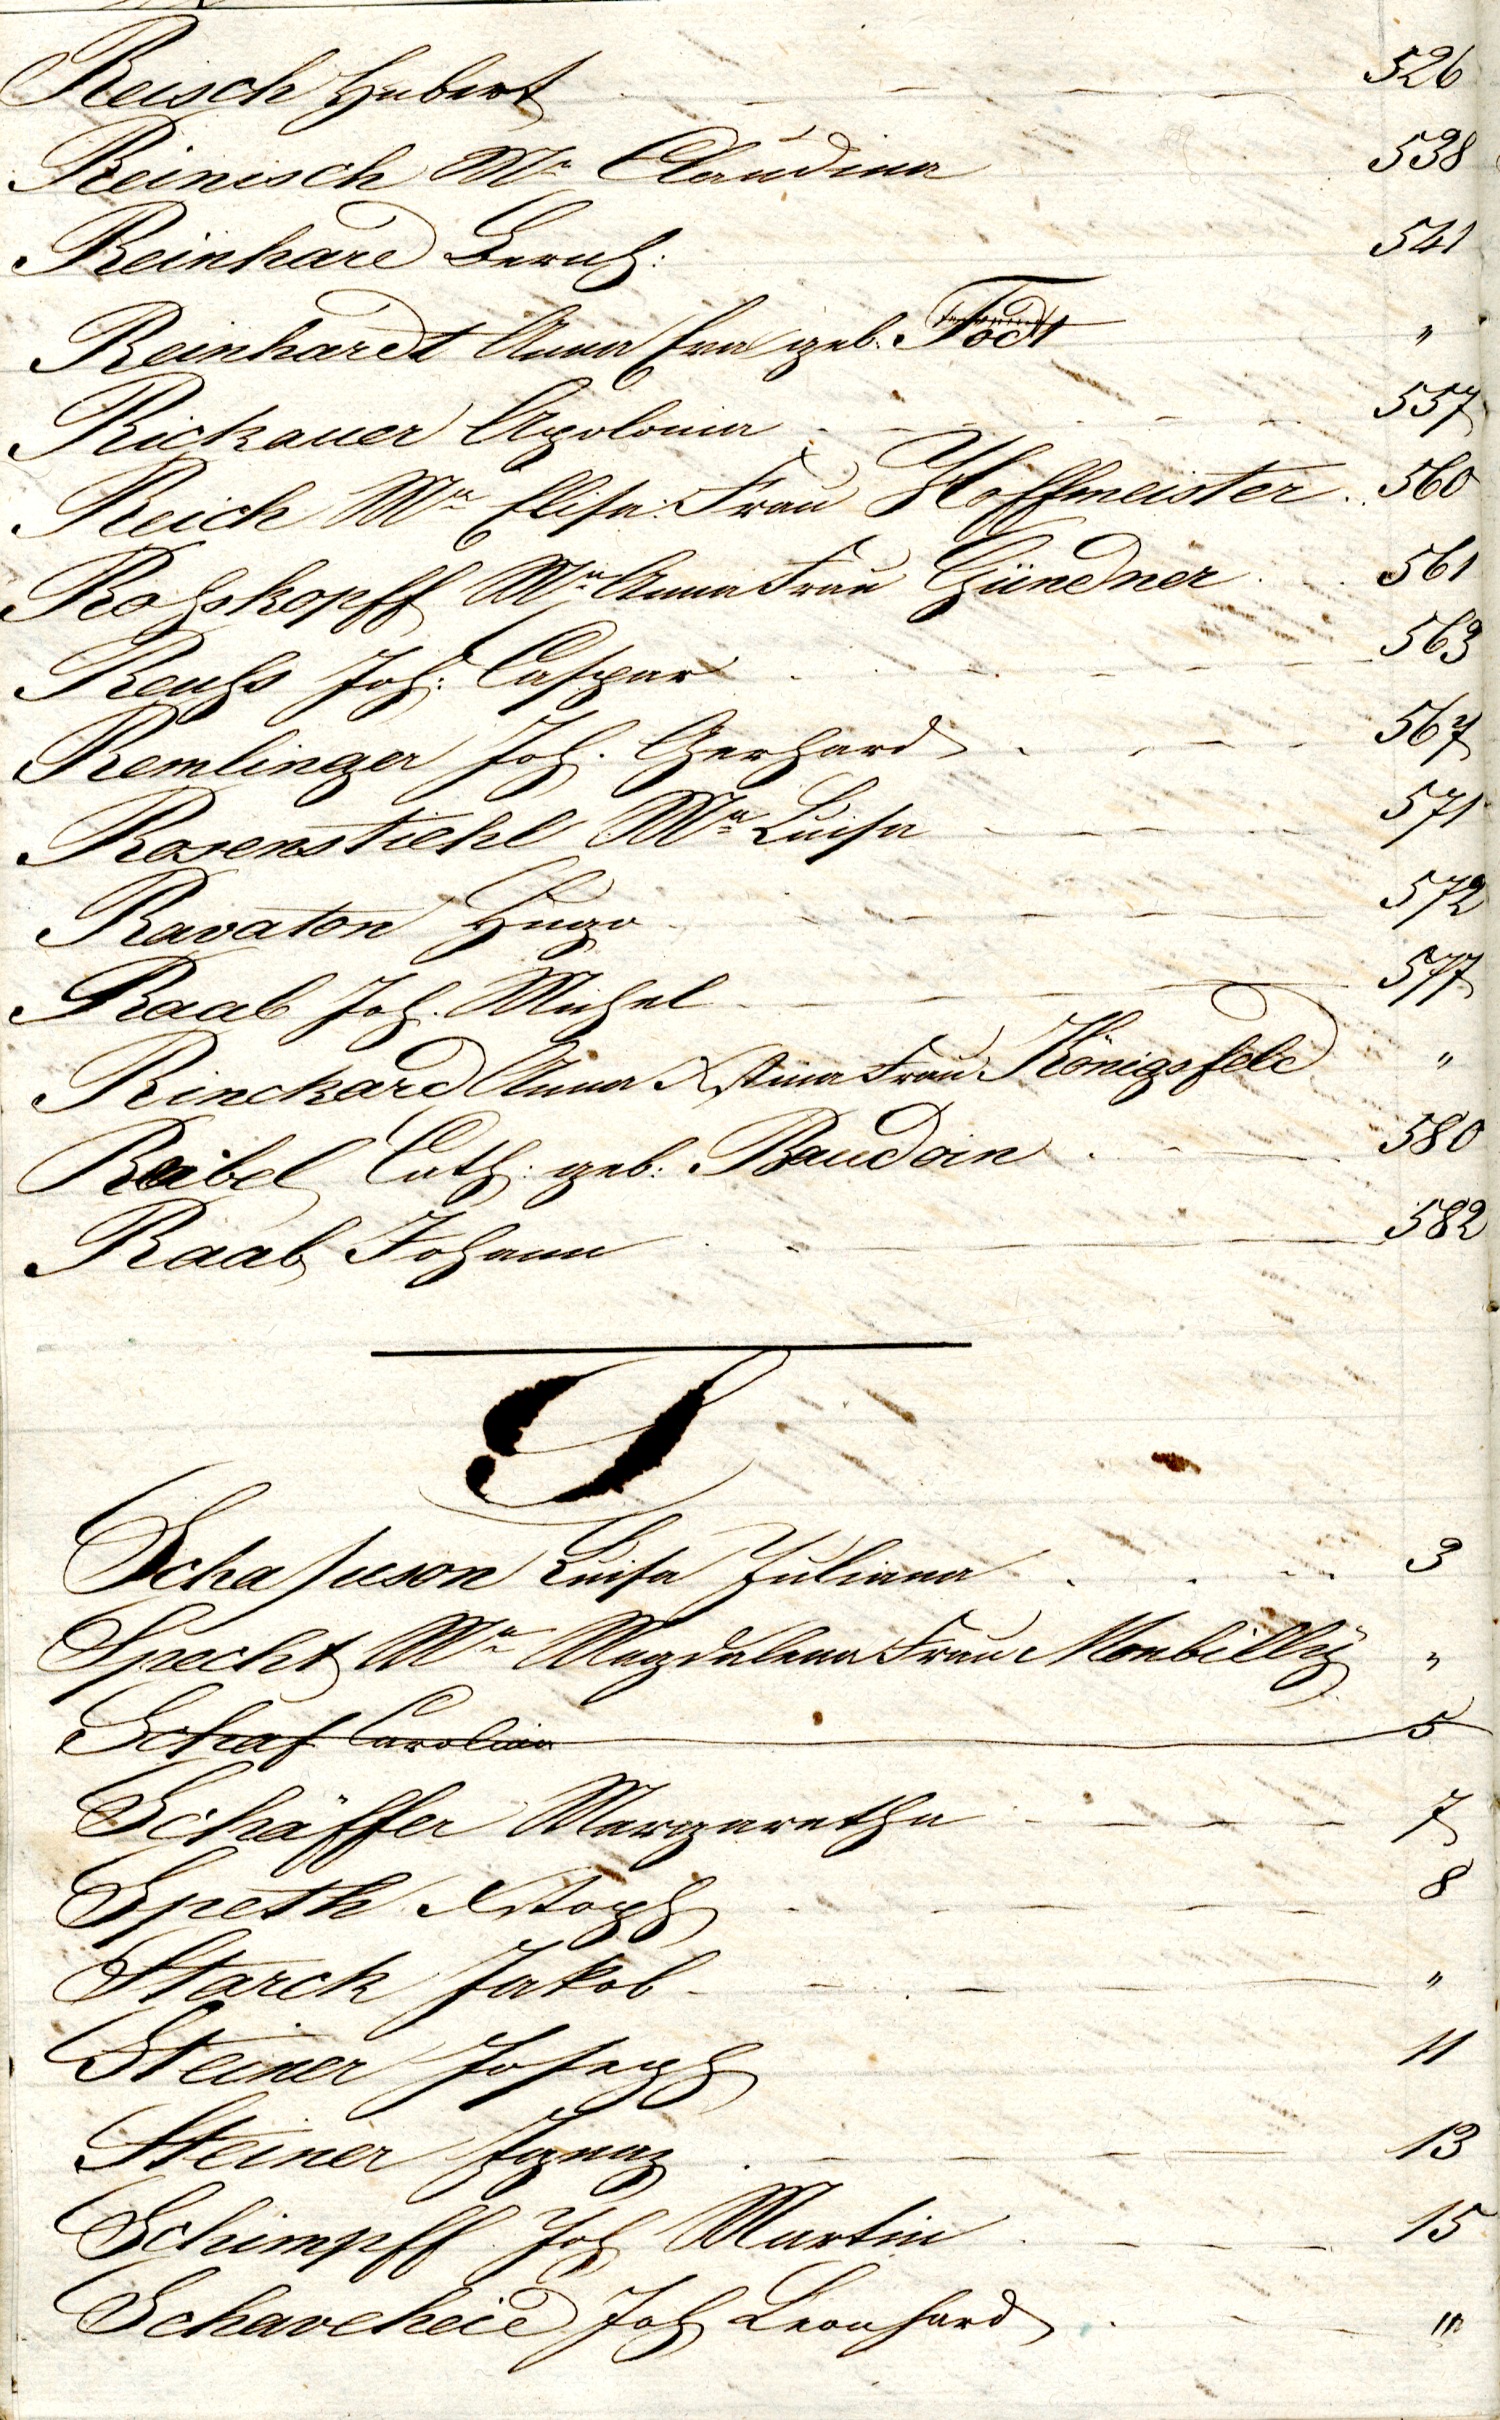 Reisch Hubert 526
Reinisch Mr Claudina 538
Reinhard Bernh: 541
Reinhardt Anna Eva geb. Todt "
Rickauer Apolonia 557
Reich Ma Elisa: Frau Hoffmeister 560
Roßkopff Ma Anna Frau Gündner 561
Reuß Joh: Caspar 563
Remlinger Joh. Gerhard 567
Rosenstiehl Ma Luisa 571
Ravaton Hugo 572
Raab Joh. Michel 577
Rinckard Anna Xstina Frau Königsfeld "
Reibel Cath: geb: Baudoin 580
Raab Johann 582
S
Luisa Juliana 3
Specht Ma Magdalena Frau Monbilly "
Schaf Carolina 5
Schäffer Margaretha 7
Speth Xstoph 8
Starck Jakob "
Steiner Joseph 11
Steiner Ignaz 13
Schimpff Joh Martin 15
Schaveheid Joh Leonhard "